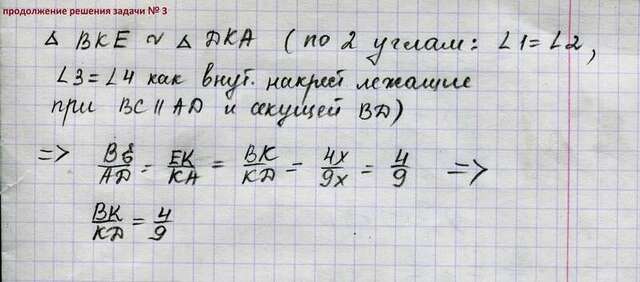 продолжение решения задачи № 3
△ BKE ~ △ DKA (по 2 углам: ∠1=∠2,
∠3=∠4 как внут. накрест лежащие
при BC ∥ AD и секущей BD)
=> BE/AD = EK/KA = BK/KD = 4x/9x = 4/9 =>
BK/KD = 4/9